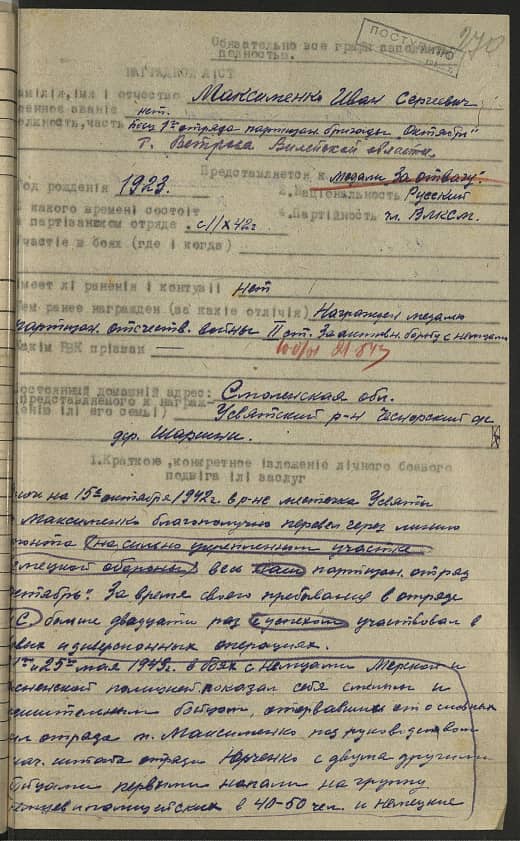 ПОСТУПИЛО
270
Обязательно все графы заполнять
полностью.
НАГРАДНОЙ ЛІСТ
амілія, імя і отчество Максименко Иван Сергеевич
оенное званіе нет.
олжность, часть боец 1го отряда партизан. бригады "Октябрь"
т. Вилейской области
Представляется к медали "За отвагу".
Год рождения 1923. 2. Національность Русский
какого времені состоіт
партізанском отряде . с 11/X 42г 4. Партійность чл. ВЛКСМ.
частіе в боях (где і когда)
меет лі раненія і контузіі нет
ем ранее награжден (за какіе отлічія) Награжден медалью
партизан. отечеств. войны II ст. За активн. борьбу с немцами
Какім РВК прізван
остоянный домашній адрес: Смоленская обл.
представляемого к награж-
енію ілі его семьі) Усвятский р-н
дер.
І.Краткое, конкретное ізложеніе лічного боевого
подвіга ілі заслуг
на 15е октября 1942г. в р-не местечка Усвяты
Максименко благополучно перевел через линию
фронта (на сильно укрепленном участке
немецкой обороны) весь наш партизан. отряд
Октябрь". За время своего пребывания в отряде
С больше двадцати раз с успехом участвовал в
евых и диверсионных операциях.
и 25го мая 1943г. в боях с немцами
полицией, показал себя смелым и
ешительным бойцом, оторвавшись от основных
ил отряда т. Максименко под руководством
нач. штаба отряда Юрченко с двумя другими
бойцами первыми напали на группу
немцев и полицейских в 40-50 чел. и немецкие